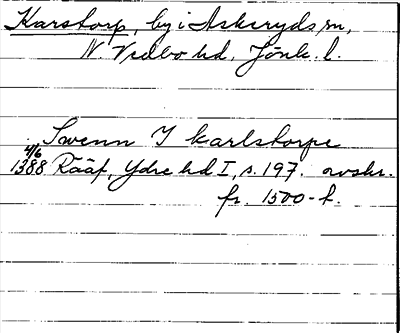 Karstorp, by i Askeryds sn,
N. Vedbo hd, Jönk. l.
Swenn I karlstorpe
4/6
1388 Rääf, Ydre hd I, s. 197. avskr.
fr. 1500-t.